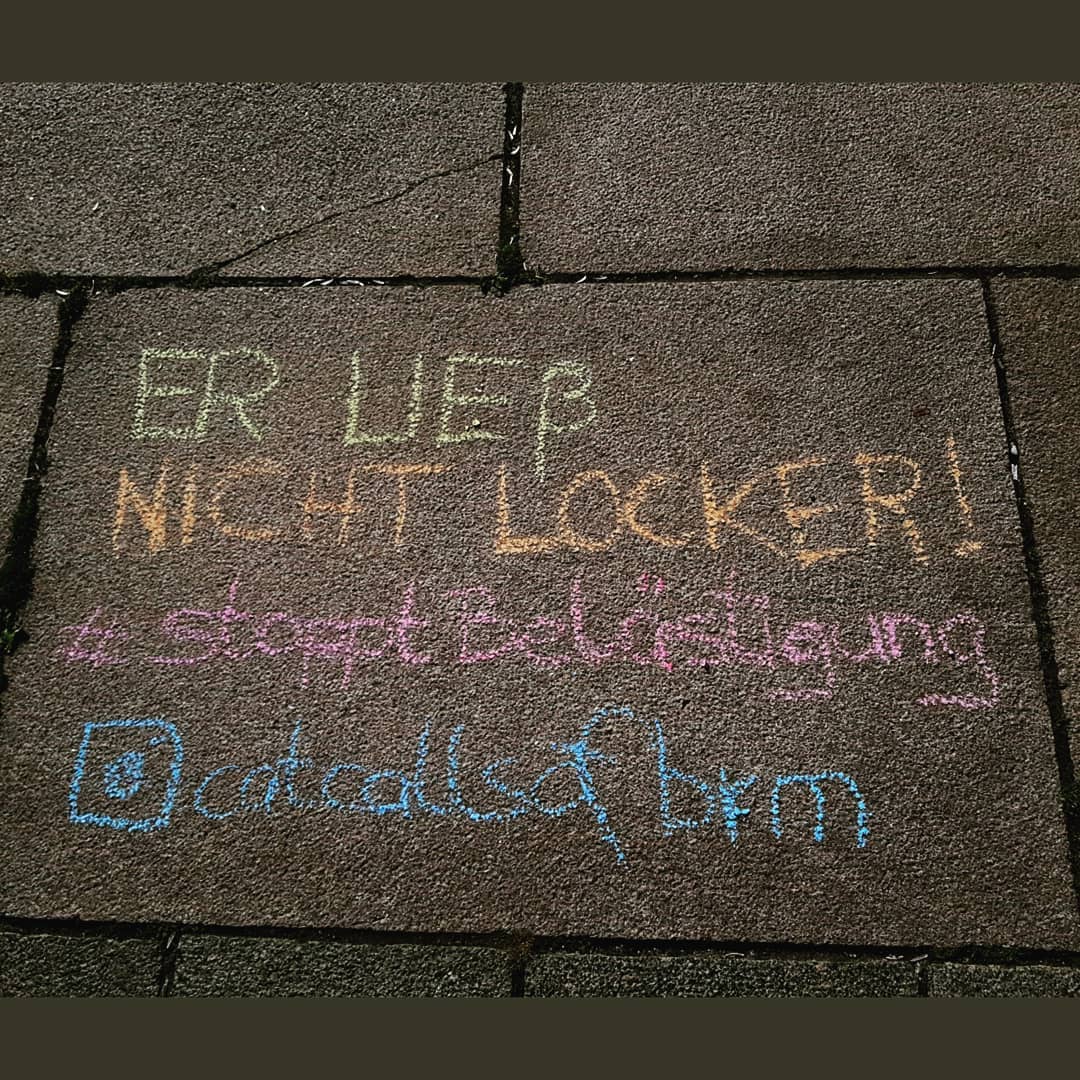 ER LIEß
NICHT LOCKER!
#stopptBelästigung
catcallsof brm